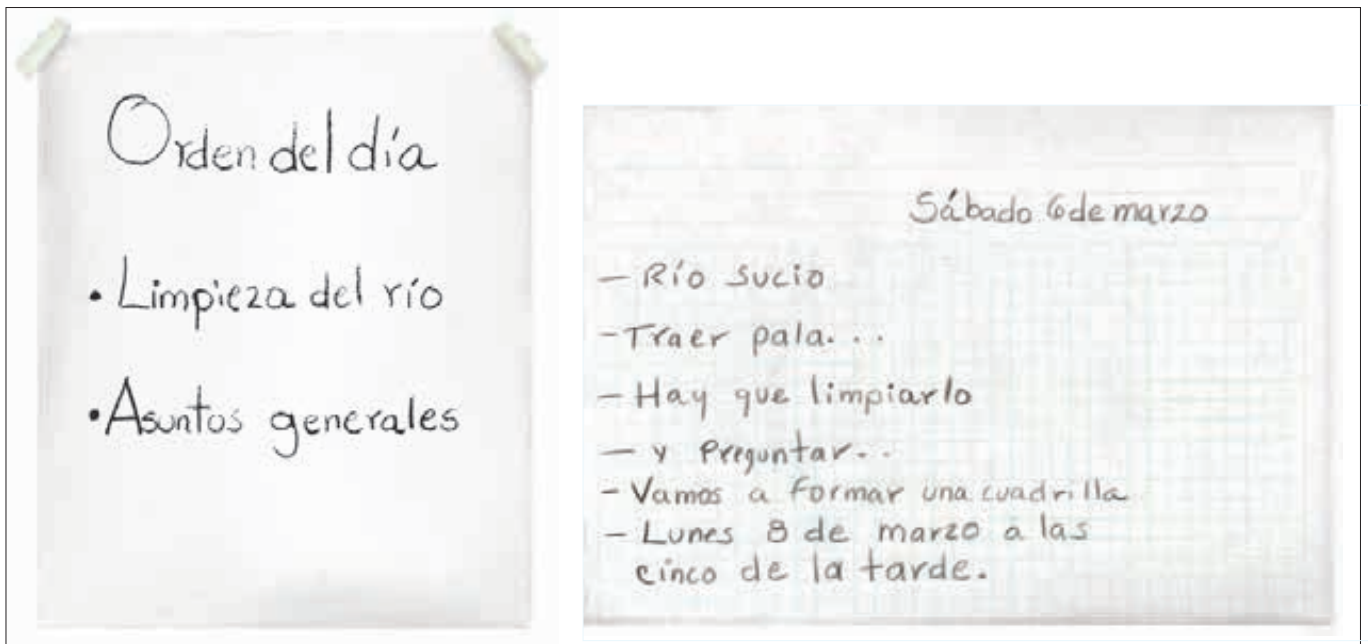 Orden del día
• Limpieza del río
• Asuntos generales
Sábado 6 de marzo
- Río sucio
- Traer pala...
- Hay que limpiarlo
- y Preguntar..
- Vamos a formar una cuadrilla
- Lunes 8 de marzo a las
cinco de la tarde.